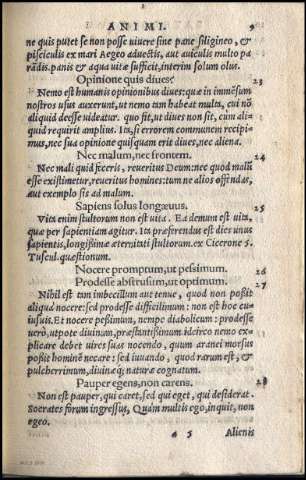 ANIMI. 9
ne quis putet se non posse uiuere sine pane siligineo, &
pisciculis ex mari Aegeo aduectis, aut auiculis multo pa
radis. panis & aqua uitæ sufficit, interim solum olus.
Opinione quis diues? 23
Nemo est humanis opinionibus diues: quæ in immēsum
nostros usus auxerunt, ut nemo tam habeat multa, cui nō
aliquid deesse uideatur. quo fit, ut diues non sit, cum ali-
quid requirit amplius. Ita, si errorem communem recipi-
mus, nec sua opinione quisquam erit diues, nec aliena.
Nec malum, nec frontem. 24
Nec mali quid feceris, reueritus Deum: nec quod malū
esse existimetur, reueritus homines: tum ne alios offendas,
aut exemplo sis ad malum.
Sapiens solus longæuus. 25
Vita enim stultorum non est uita. Ea demum est uita,
quæ per sapientiam agitur. Ita præferendus est dies unus
sapientis, longissimæ æternitati stultorum. ex Cicerone 5.
Tuscul. quæstionum.
Nocere promptum, ut pessimum. 26
Prodesse abstrusum, ut optimum. 27
Nihil est tam imbecillum aut tenue, quod non possit
aliquid nocere: sed prodesse difficilimum: non est hoc cu-
iusuis. Et nocere pessimum, nempe diabolicum: prodesse
uerò, utpote diuinum, præstantissimum. idcirco nemo ex-
plicare debet uires suas nocendo, quum aranei morsus
possit hominē necare: sed iuuando, quod rarum est, &
pulcherrimum, diuinæq; naturæ cognatum.
Pauper egens, non carens. 28
Non est pauper, qui caret, sed qui eget, qui desiderat.
Socrates forum ingressus, Quàm multis ego, inquit, non
egeo.
a 5 Alienis